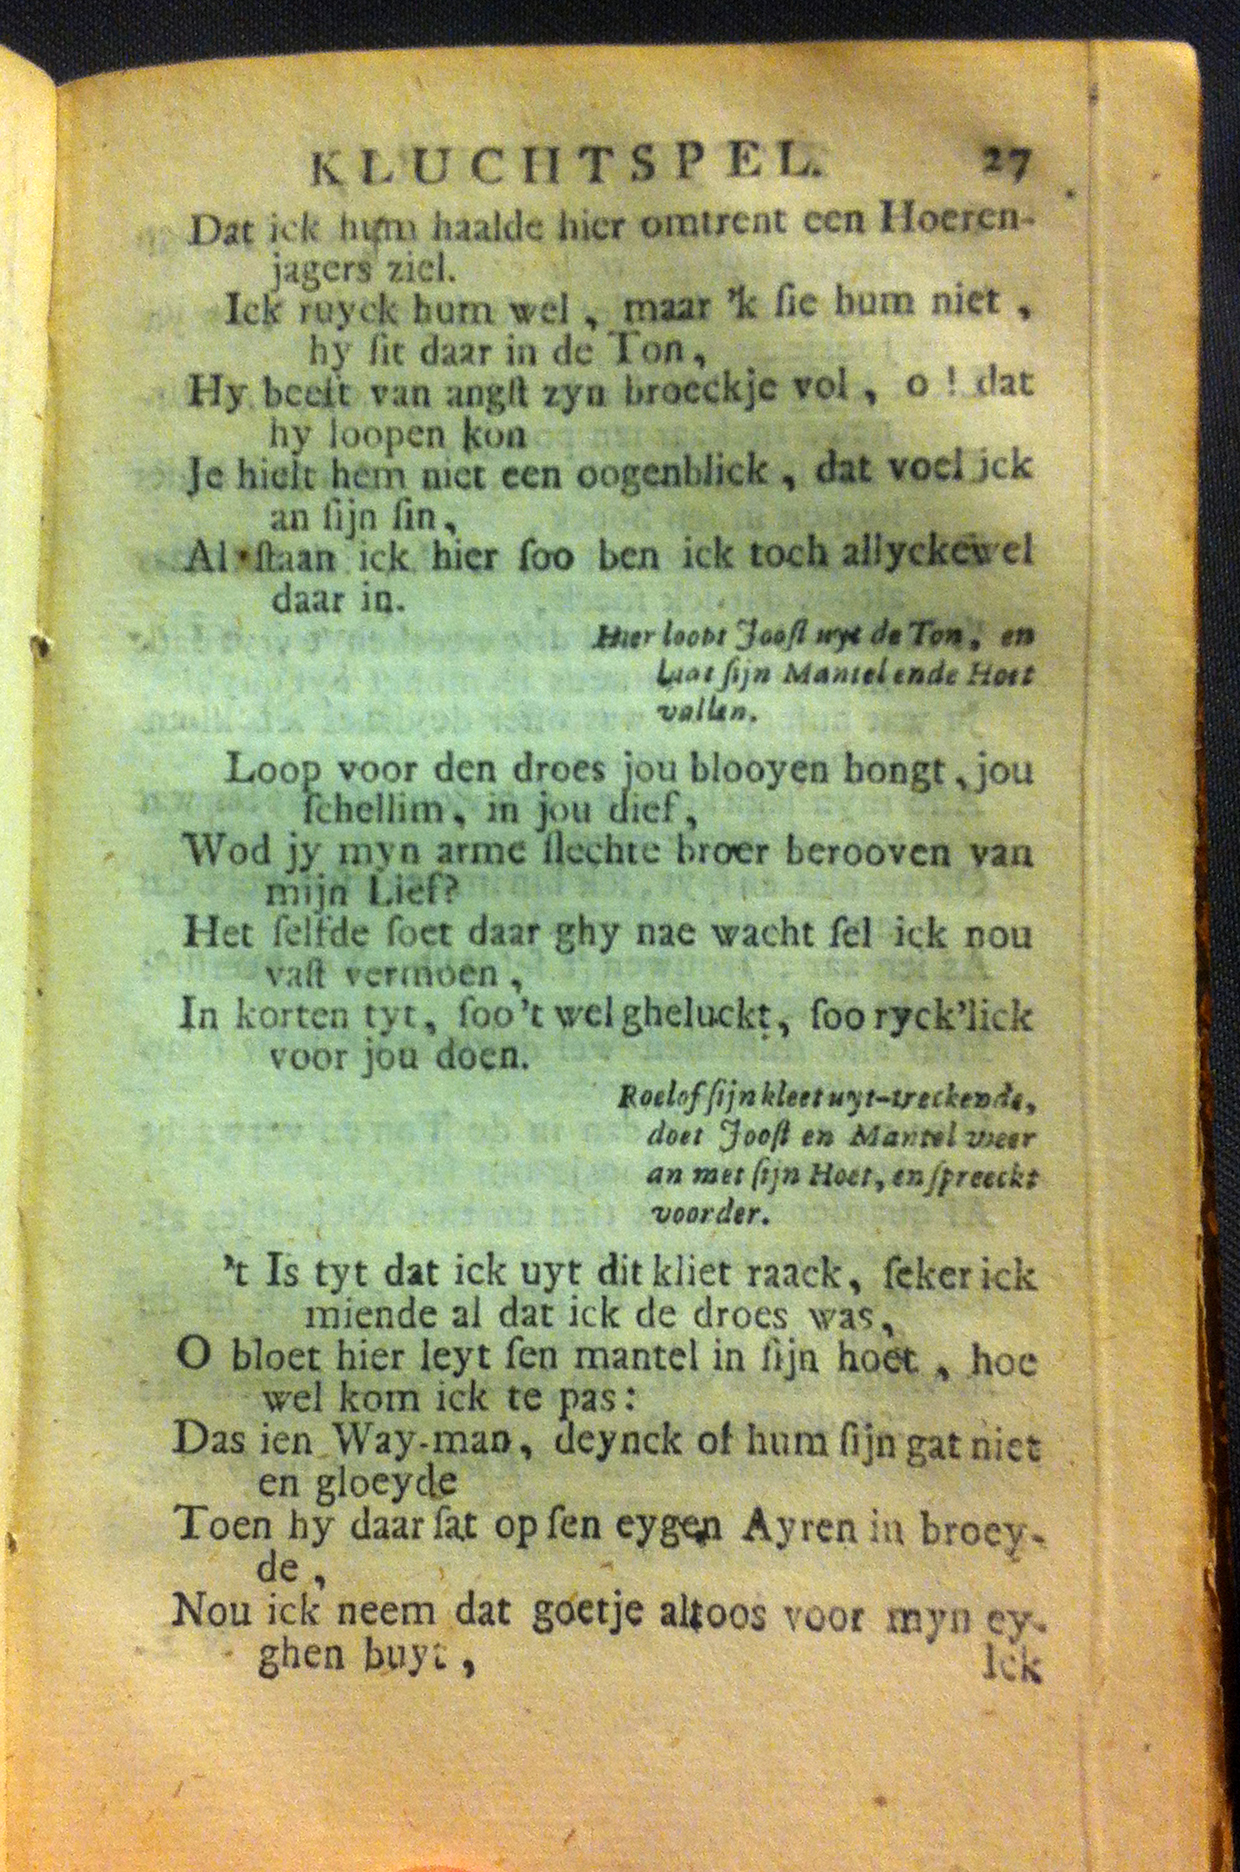 KLUCHTSPEL. 27
Dat ick hum haalde hier omtrent een Hoeren-
jagers ziel.
Ick ruyck hum wel, maar 'k ſie hum niet,
hy ſit daar in de Ton,
Hy beeft van angſt zyn broeckje vol, o! dat
hy loopen kon
Je hielt hem niet een oogenblick, dat voel ick
an ſijn ſin,
Al ſtaan ick hier ſoo ben ick toch allyckewel
daar in.
Hier loopt Jooſt uyt de Ton, en
laat ſijn Mantel ende Hoet
vallen.
Loop voor den droes jou blooyen hongt, jou
ſchellim, in jou dief,
Wod jy myn arme ſlechte broer berooven van
mijn Lief?
Het ſelfde ſoet daar ghy nae wacht ſel ick nou
vaſt vermoen,
In korten tyt, ſoo 't wel gheluckt, ſoo ryck'lick
voor jou doen.
Roelof ſijn kleet uyt-treckende,
doet Jooſt en Mantel weer
an met ſijn Hoet, en ſpreeckt
voorder.
't Is tyt dat ick uyt dit kliet raack, ſeker ick
miende al dat ick de droes was,
O bloet hier leyt ſen mantel in ſijn hoet, hoe
wel kom ick te pas:
Das ien Way-man, deynck of hum ſijn gat niet
en gloeyde
Toen hy daar ſat op ſen eygen Ayren in broey-
de,
Nou ick neem dat goetje altoos voor myn ey-
ghen buyt,
Ick